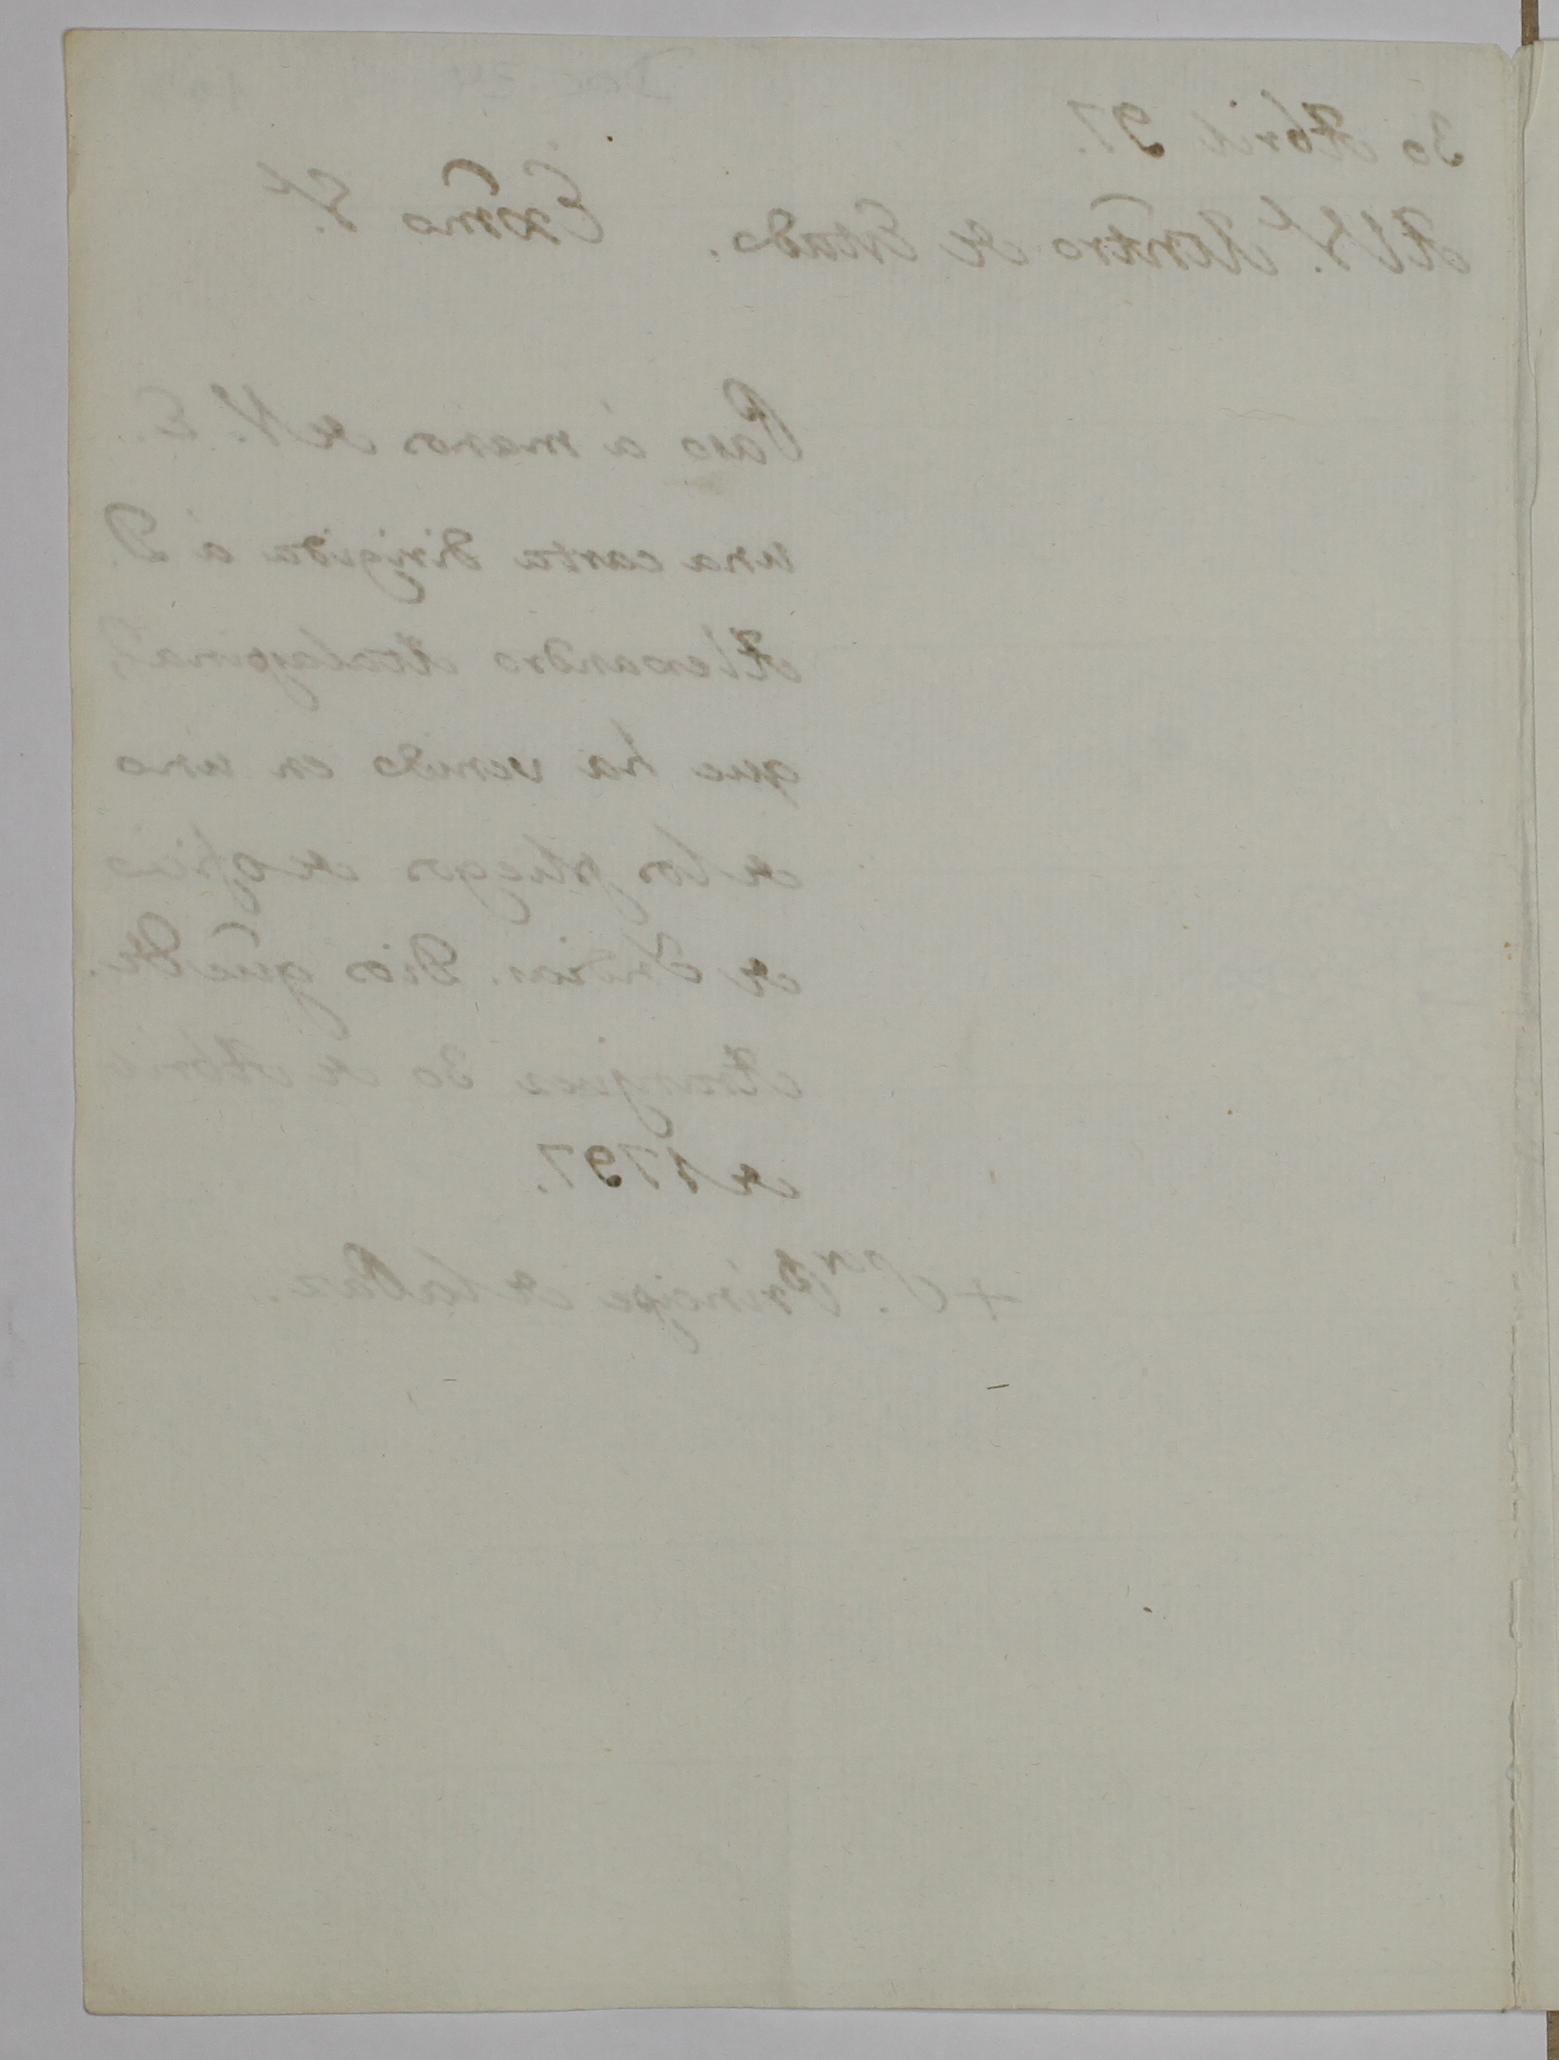 Doc 34
30 Abril 97.
Al S.r Mintro de Estado. Exmo S.r
Paso á manos de V. E.
una carta dirigida á D.
Alexandro Malaspina,
que ha venido en uno
de los pliegos de oficio
de Indias. Dios gue &a.
Aranjuez 30 de Abril
de 1797.
+ S.or Principe de la Paz.